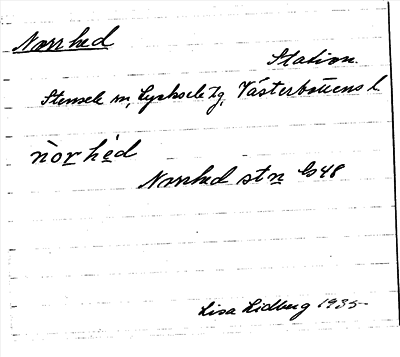 Norrhed
Station
Stensele sn, Lycksele tg, Västerbottens l
nòrhèd
Norrhed stn
Lisa Lidberg 1935